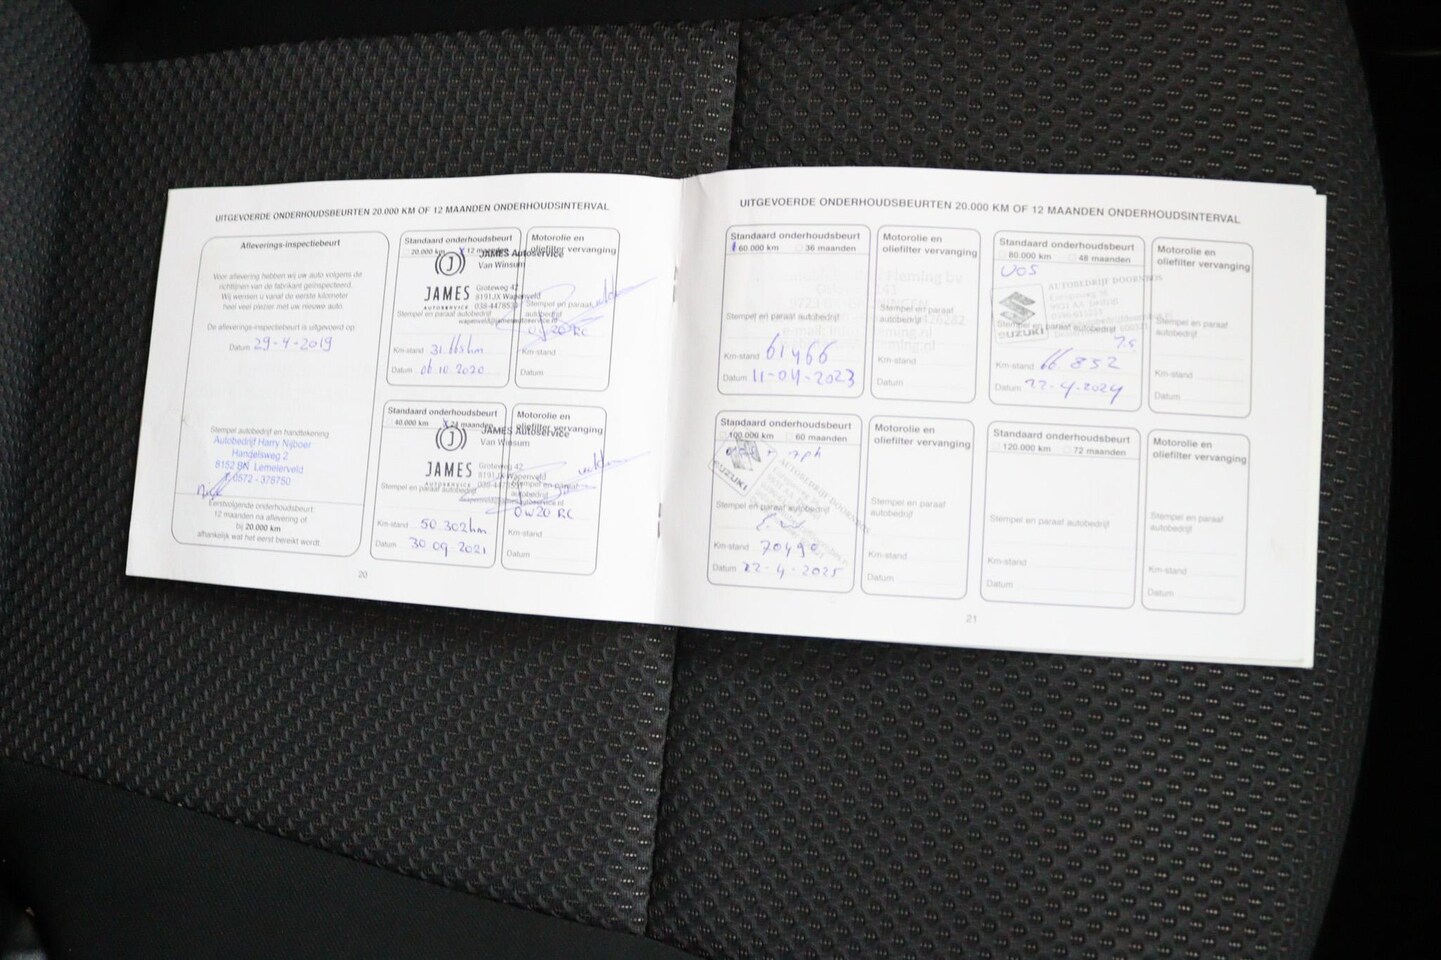 UITGEVOERDE ONDERHOUDSBEURTEN 20.000 KM OF 12 MAANDEN ONDERHOUDSINTERVAL
Afleverings-inspectiebeurt
Voor aflevering hebben wij uw auto volgens de
richtlijnen van de fabrikant geïnspecteerd.
Wij wensen u vanaf de eerste kilometer
heel veel plezier met uw nieuwe auto.
De afleverings-inspectiebeurt is uitgevoerd op:
Datum 29-4-2019
Stempel autobedrijf en handtekening
Autobedrijf Harry Nijboer
Handelsweg 2
8152 BN Lemelerveld
0572 - 378750
Eerstvolgende onderhoudsbeurt:
12 maanden na aflevering of
bij 20.000 km
afhankelijk wat het eerst bereikt wordt.
Standaard onderhoudsbeurt
20.000 km X 12 maanden
JAMES Autoservice
Van Winsum
JAMES
AUTOSERVICE
Groteweg 42
8191JX Wapenveld
Stempel en paraaf autobedrijf
Km-stand
Datum 06 10 2020
Motorolie en
oliefilter vervanging
Stempel en paraaf
autobedrijf
Km-stand
Datum
Standaard onderhoudsbeurt
40.000 km X 24 maanden
JAMES Autoservice
Van Winsum
JAMES
AUTOSERVICE
Groteweg 42
8191JX Wapenveld
Stempel en paraaf autobedrijf
Km-stand 50.302km
Datum 30 09 2021
Motorolie en
oliefilter vervanging
Stempel en paraaf
autobedrijf
0W20 RC
Km-stand
Datum
20
UITGEVOERDE ONDERHOUDSBEURTEN 20.000 KM OF 12 MAANDEN ONDERHOUDSINTERVAL
Standaard onderhoudsbeurt
60.000 km 36 maanden
Fleming bv
Stempel en paraaf autobedrijf
Km-stand 61466
Datum 11-04-2023
Motorolie en
oliefilter vervanging
Stempel en paraaf
autobedrijf
Km-stand
Datum
Standaard onderhoudsbeurt
80.000 km 48 maanden
AUTOBEDRIJF DOORNBOS
SUZUKI
Stempel en paraaf autobedrijf
Km-stand 66 852
Datum 22-4-2024
Motorolie en
oliefilter vervanging
Stempel en paraaf
autobedrijf
Km-stand
Datum
Standaard onderhoudsbeurt
100.000 km 60 maanden
SUZUKI
AUTOBEDRIJF DOORNBOS
Stempel en paraaf autobedrijf
Km-stand 70490
Datum 22-4-2025
Motorolie en
oliefilter vervanging
Stempel en paraaf
autobedrijf
Km-stand
Datum
Standaard onderhoudsbeurt
120.000 km 72 maanden
Stempel en paraaf autobedrijf
Km-stand
Datum
Motorolie en
oliefilter vervanging
Stempel en paraaf
autobedrijf
Km-stand
Datum
21